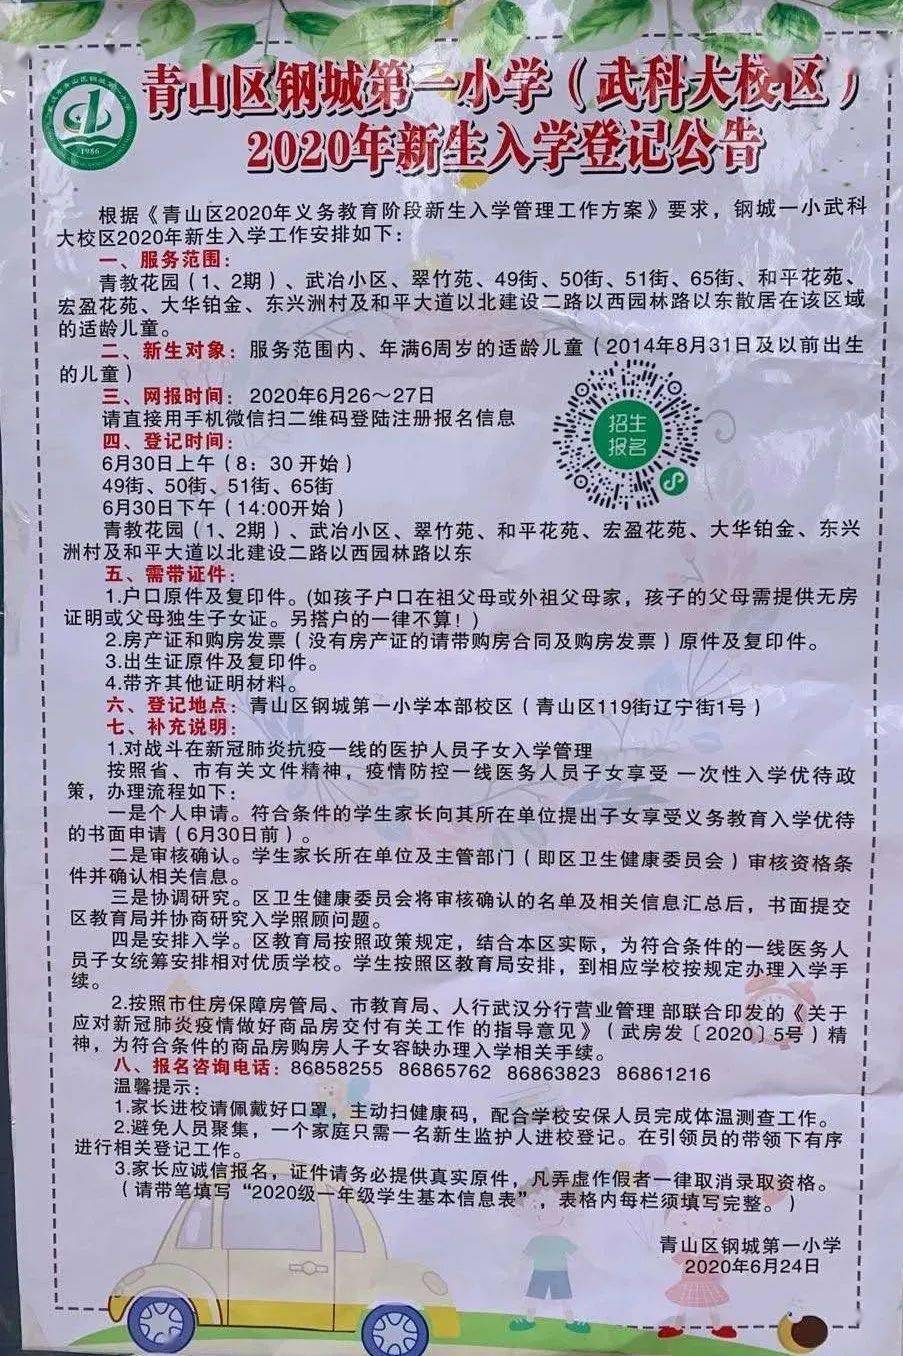 青山区钢城第一小学（武科大校区）
2020年新生入学登记公告
1986
根据《青山区2020年义务教育阶段新生入学管理工作方案》要求，钢城一小武科
大校区2020年新生入学工作安排如下：
一、服务范围：
青教花园（1、2期）、武冶小区、翠竹苑、49街、50街、51街、65街、和平花苑、
宏盈花苑、大华铂金、东兴洲村及和平大道以北建设二路以西园林路以东散居在该区域
的适龄儿童。
二、新生对象：服务范围内、年满6周岁的适龄儿童（2014年8月31日及以前出生
的儿童）
三、网报时间： 2020年6月26～27日
请直接用手机微信扫二维码登陆注册报名信息
招生
报名
四、登记时间：
6月30日上午（8：30 开始）
49街、50街、51街、65街
6月30日下午（14:00开始）
青教花园（1、2期）、武冶小区、翠竹苑、和平花苑、宏盈花苑、大华铂金、东兴
洲村及和平大道以北建设二路以西园林路以东
五、需带证件：
1.户口原件及复印件。(如孩子户口在祖父母或外祖父母家，孩子的父母需提供无房
证明或父母独生子女证。另搭户的一律不算！)
2.房产证和购房发票（没有房产证的请带购房合同及购房发票）原件及复印件。
3.出生证原件及复印件。
4.带齐其他证明材料。
六、登记地点：青山区钢城第一小学本部校区（青山区119街辽宁街1号）
七、补充说明：
1.对战斗在新冠肺炎抗疫一线的医护人员子女入学管理
按照省、市有关文件精神，疫情防控一线医务人员子女享受 一次性入学优待政
策，办理流程如下：
一是个人申请。符合条件的学生家长向其所在单位提出子女享受义务教育入学优待
的书面申请（6月30日前）。
二是审核确认。学生家长所在单位及主管部门（即区卫生健康委员会）审核资格条
件并确认相关信息。
三是协调研究。区卫生健康委员会将审核确认的名单及相关信息汇总后，书面提交
区教育局并协商研究入学照顾问题。
四是安排入学。区教育局按照政策规定，结合本区实际，为符合条件的一线医务人
员子女统筹安排相对优质学校。学生按照区教育局安排，到相应学校按规定办理入学手
续。
2.按照市住房保障房管局、市教育局、人行武汉分行营业管理 部联合印发的《关于
应对新冠肺炎疫情做好商品房交付有关工作 的指导意见》（武房发〔2020〕5号）精
神，为符合条件的商品房购房人子女容缺办理入学相关手续。
八、报名咨询电话：86858255 86865762 86863823 86861216
温馨提示：
1.家长进校请佩戴好口罩，主动扫健康码，配合学校安保人员完成体温测查工作。
2.避免人员聚集，一个家庭只需一名新生监护人进校登记。在引领员的带领下有序
进行相关登记工作。
3.家长应诚信报名，证件请务必提供真实原件，凡弄虚作假者一律取消录取资格。
（请带笔填写“2020级一年级学生基本信息表”，表格内每栏须填写完整。）
青山区钢城第一小学
2020年6月24日